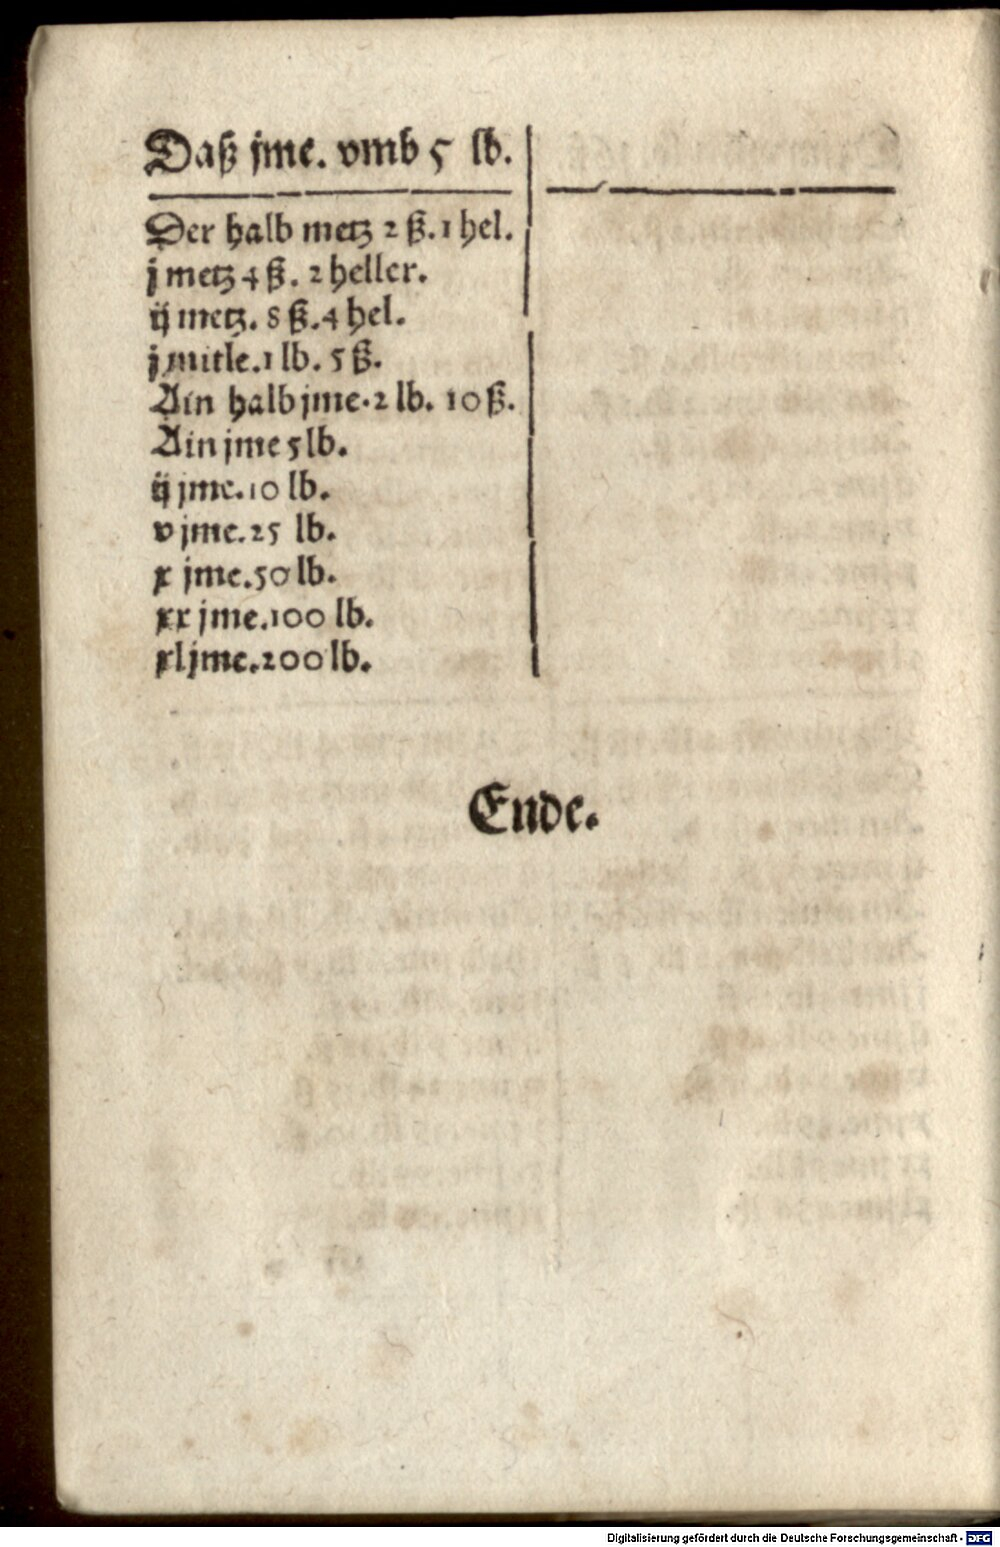 Daß jme. vmb 5 lb.
Der halb metz 2 ß. 1 hel.
j metz 4 ß. 2 heller.
ij metz. 8 ß. 4 hel.
j mitle. 1 lb. 5 ß.
Ain halb jme. 2 lb. 10 ß.
Ain jme 5 lb.
ij jme. 10 lb.
v jme. 25 lb.
x jme. 50 lb.
xx jme. 100 lb.
xl jme. 200 lb.
Ende.
Digitalisierung gefördert durch die Deutsche Forschungsgemeinschaft - DFG